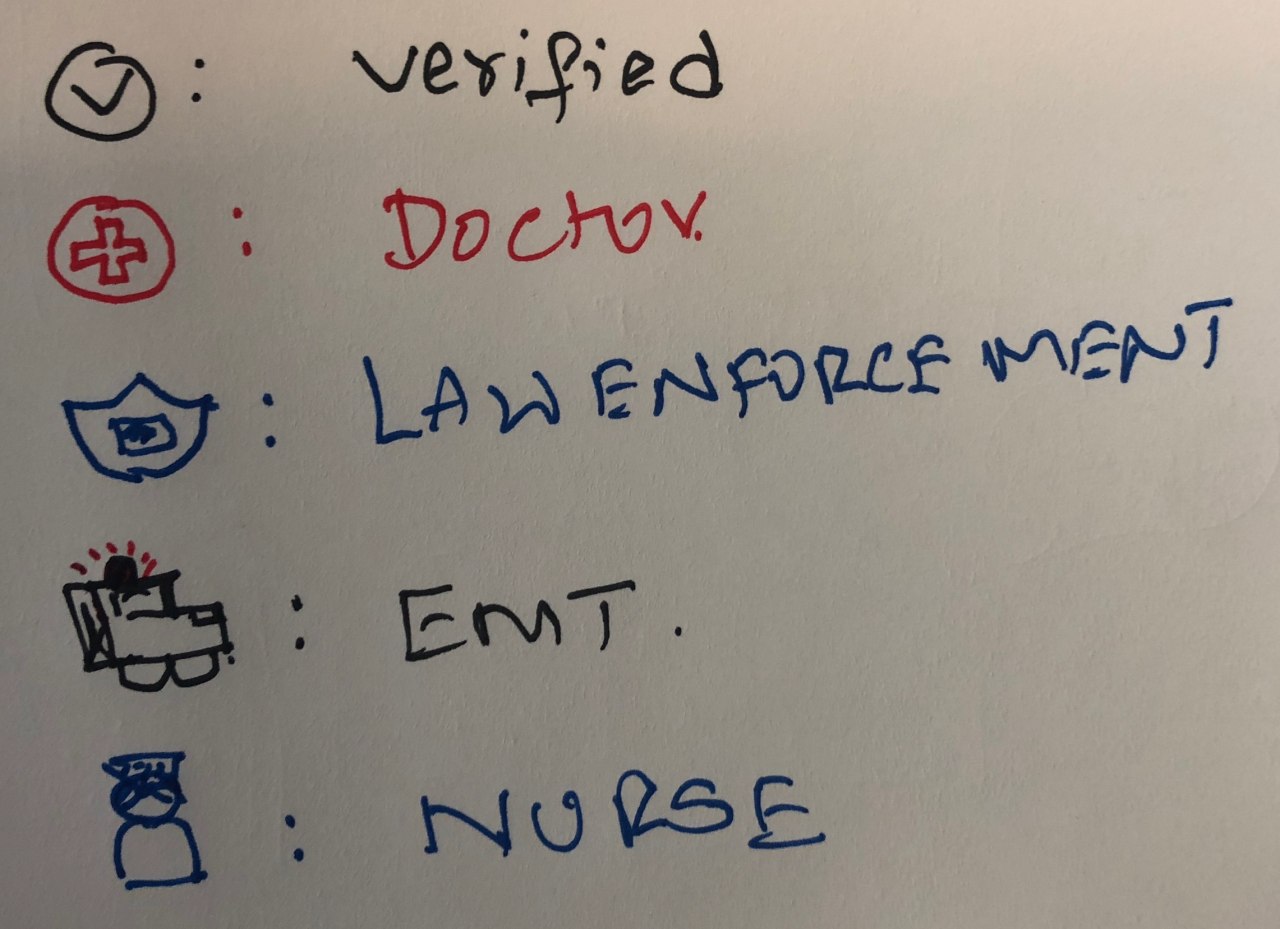 : verified
: Doctor.
: LAW ENFORCEMENT
: EMT.
: NURSE